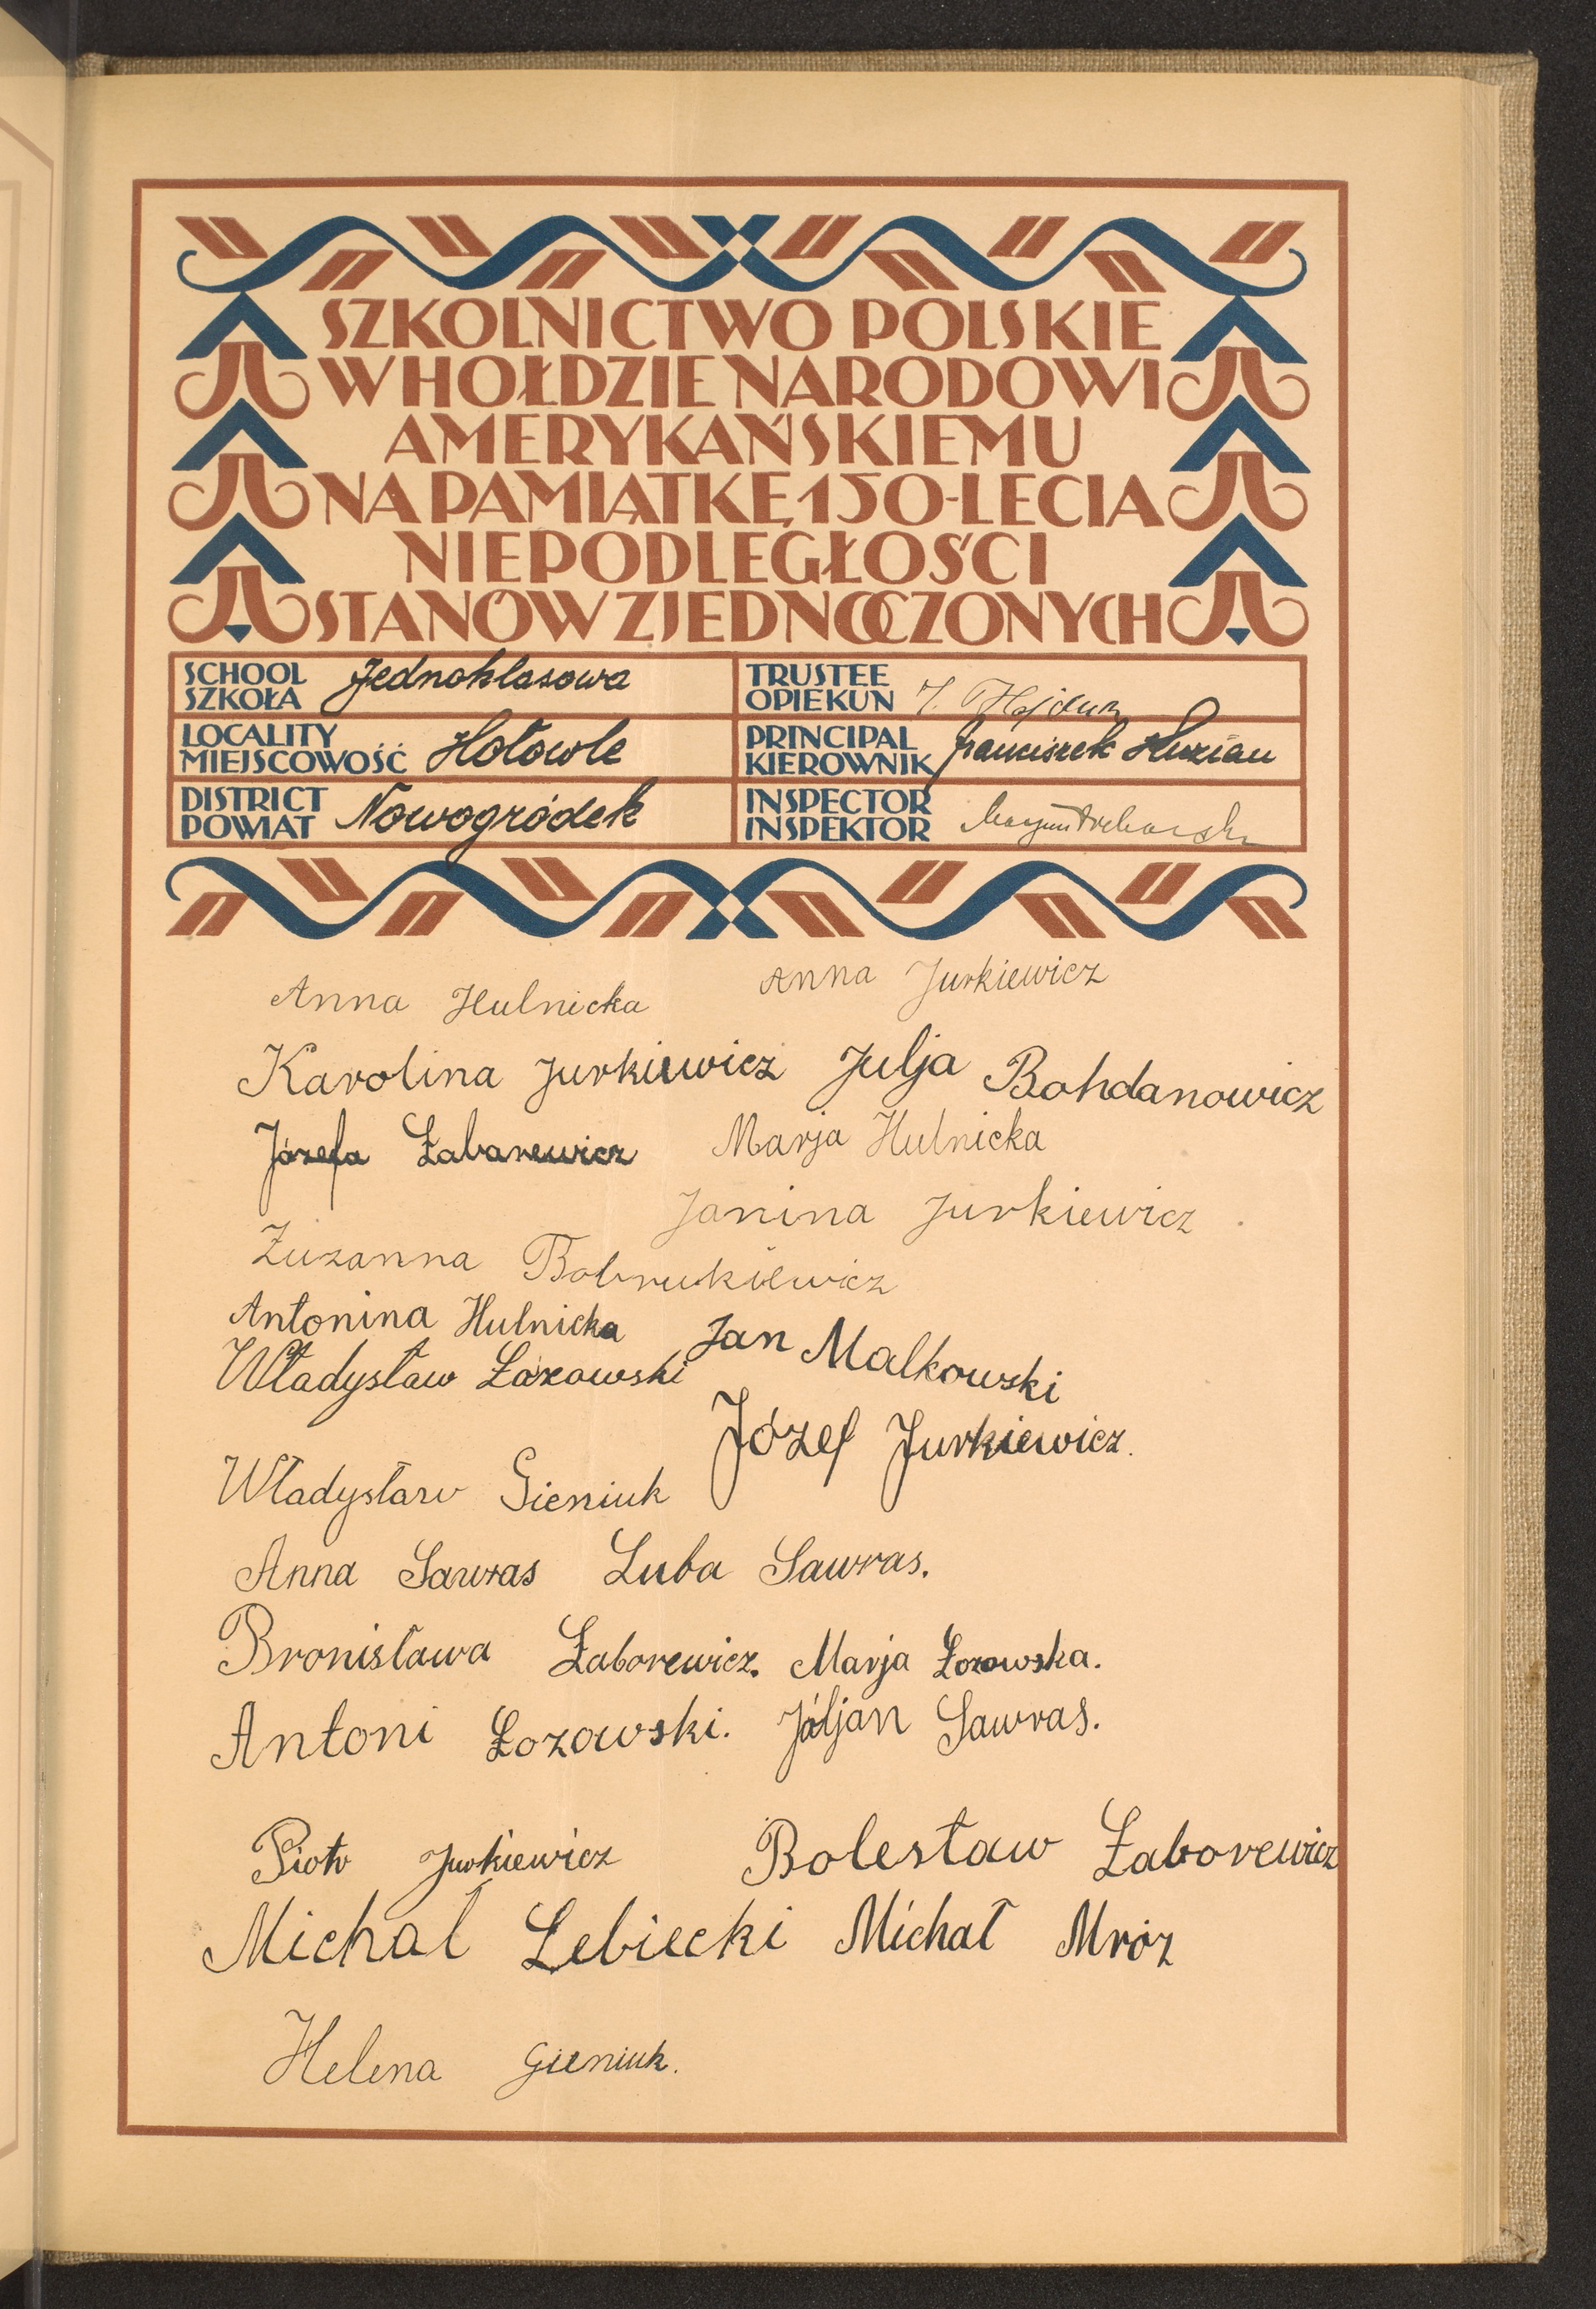 SZKOLNICTWO POLSKIE
W HOŁDZIE NARODOWI
AMERYKAŃSKIEMU
NA PAMIĄTKĘ 150-LECIA
NIEPODLEGŁOŚCI
STANÓW ZJEDNOCZONYCH
SCHOOL
SZKOŁA Jednoklasowa
TRUSTEE
OPIEKUN
LOCALITY
MIEJSCOWOŚĆ Hołowle
PRINCIPAL
KIEROWNIK Franciszek Huzian
DISTRICT
POWIAT Nowogródek
INSPECTOR
INSPEKTOR
Anna Hulnicka Anna Jurkiewicz
Karolina Jurkiewicz Julja Bohdanowicz
Józefa Łabarewicz Marja Hulnicka
Janina Jurkiewicz
Zuzanna Bobrukiewicz
Antonina Hulnicka Jan Malkowski
Władysław Łozowski
Józef Jurkiewicz.
Władysław Gieniuk
Anna Sawras Luba Sawras.
Bronisława Łaborewicz. Marja Łozowska.
Antoni Łozowski. Júljan Sawras.
Piotr Jurkiewicz Bolesław Łaborewicz
Michał Lebiecki Michał Mróz
Helena Gieniuk.